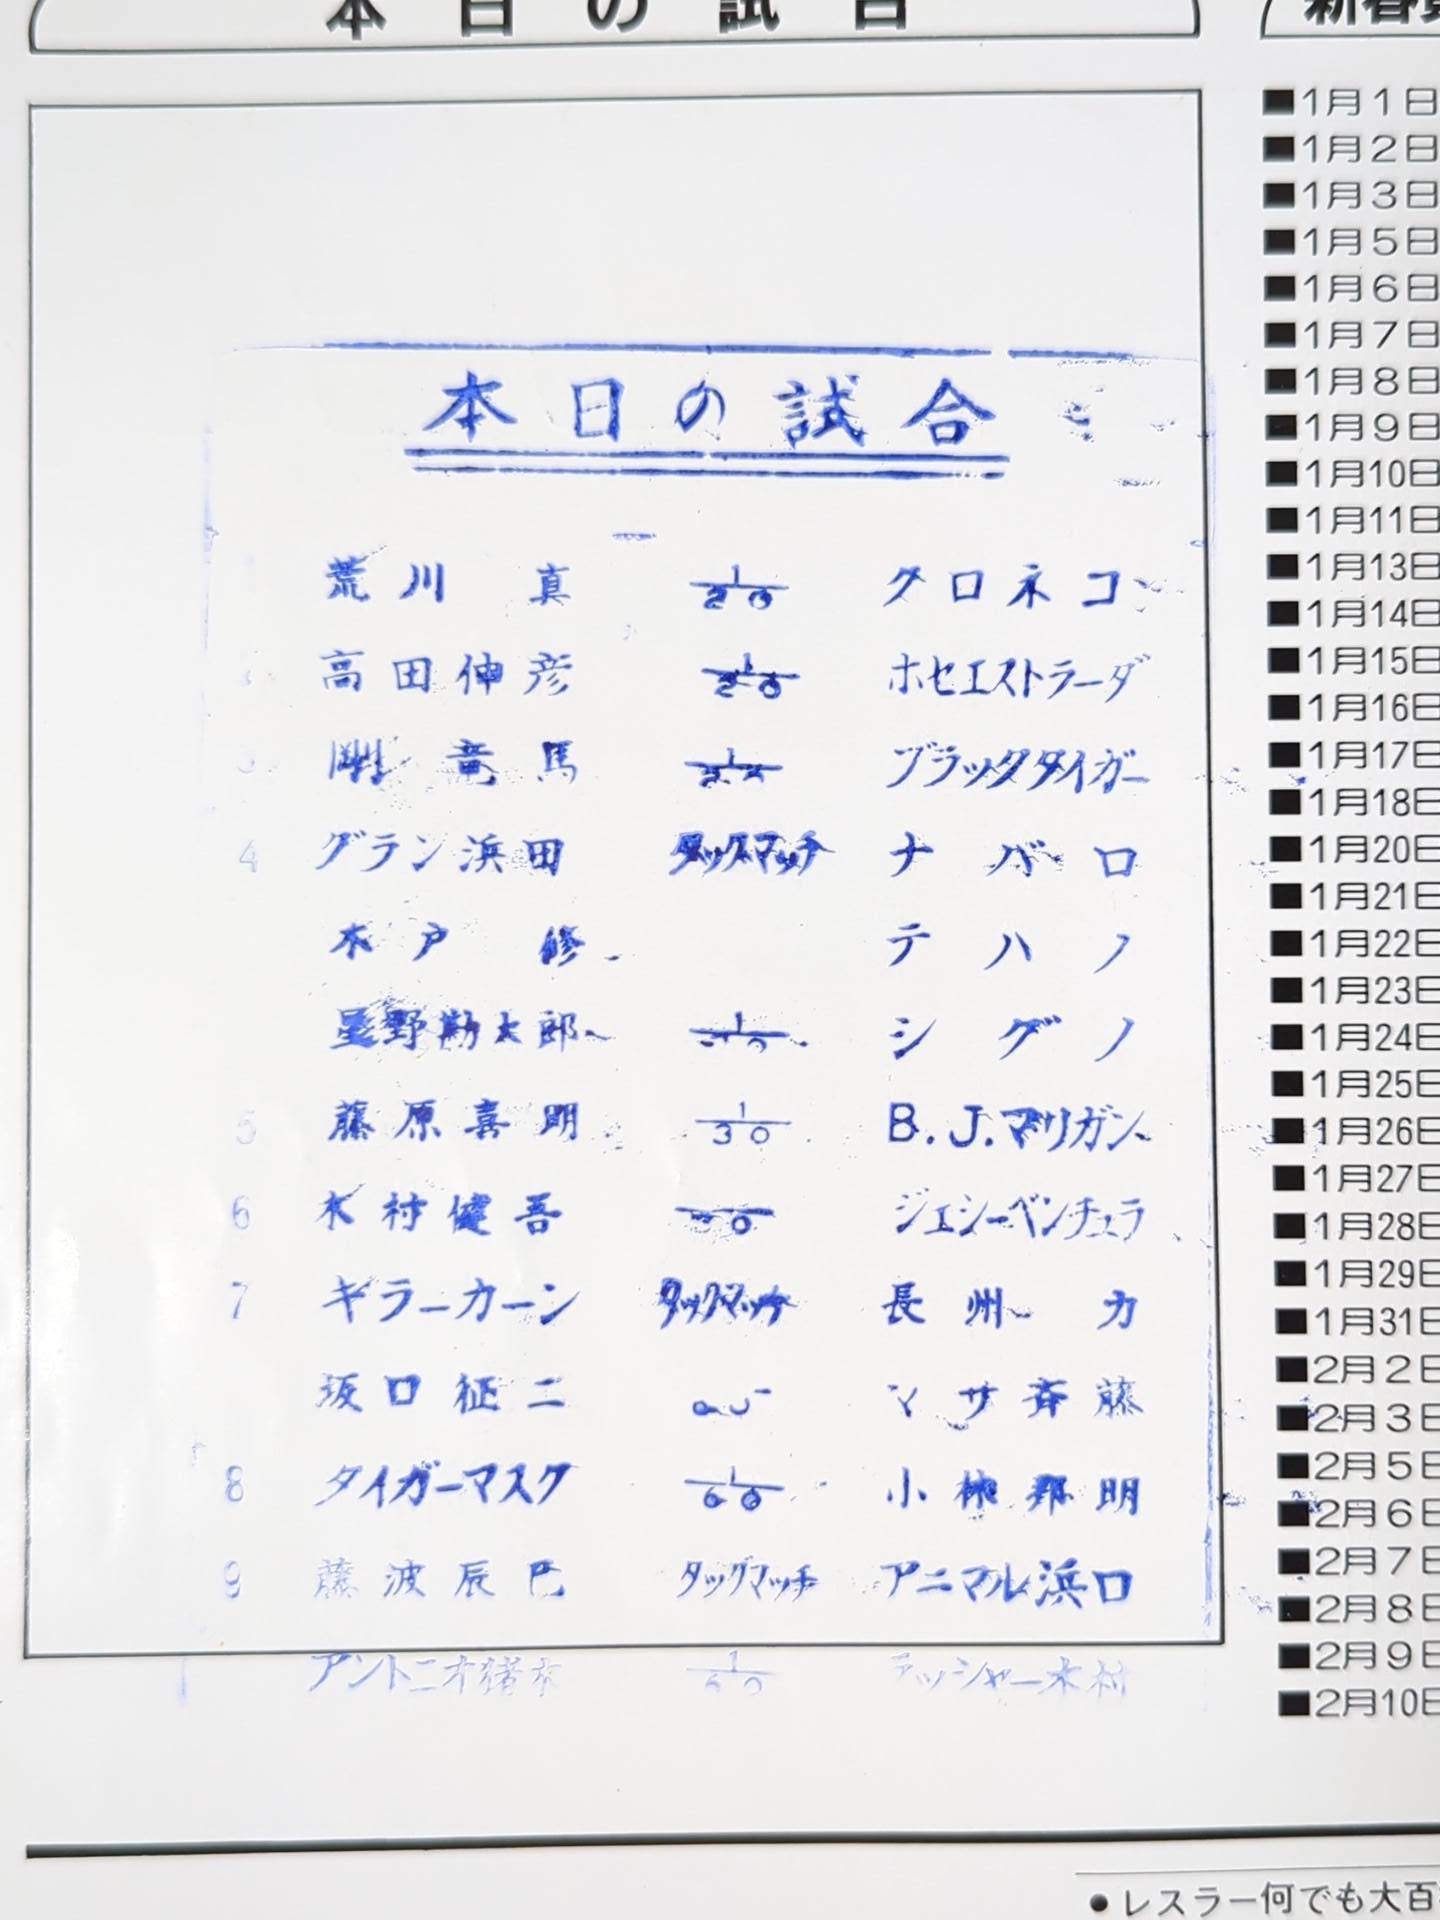 本日の試合
本日の試合
荒川真 1/20 クロネコ
高田伸彦 1/20 ホセエストラーダ
剛竜馬 ブラックタイガー
4 グラン浜田 タッグマッチ ナバロ
木戸修 テハノ
星野勘太郎 シグノ
5 藤原喜明 1/30 B.J.マリガン
6 木村健吾 ジェシーベンチュラ
7 キラーカーン タッグマッチ 長州力
坂口征二 マサ斉藤
8 タイガーマスク 1/60 小林邦明
9 藤波辰巳 タッグマッチ アニマル浜口
アントニオ猪木 ラッシャー木村
新春
■1月1日
■1月2日
■1月3日
■1月5日
■1月6日
■1月7日
■1月8日
■1月9日
■1月10日
■1月11日
■1月13日
■1月14日
■1月15日
■1月16日
■1月17日
■1月18日
■1月20日
■1月21日
■1月22日
■1月23日
■1月24日
■1月25日
■1月26日
■1月27日
■1月28日
■1月29日
■1月31日
■2月2日
■2月3日
■2月5日
■2月6日
■2月7日
■2月8日
■2月9日
■2月10日
●レスラー何でも大百